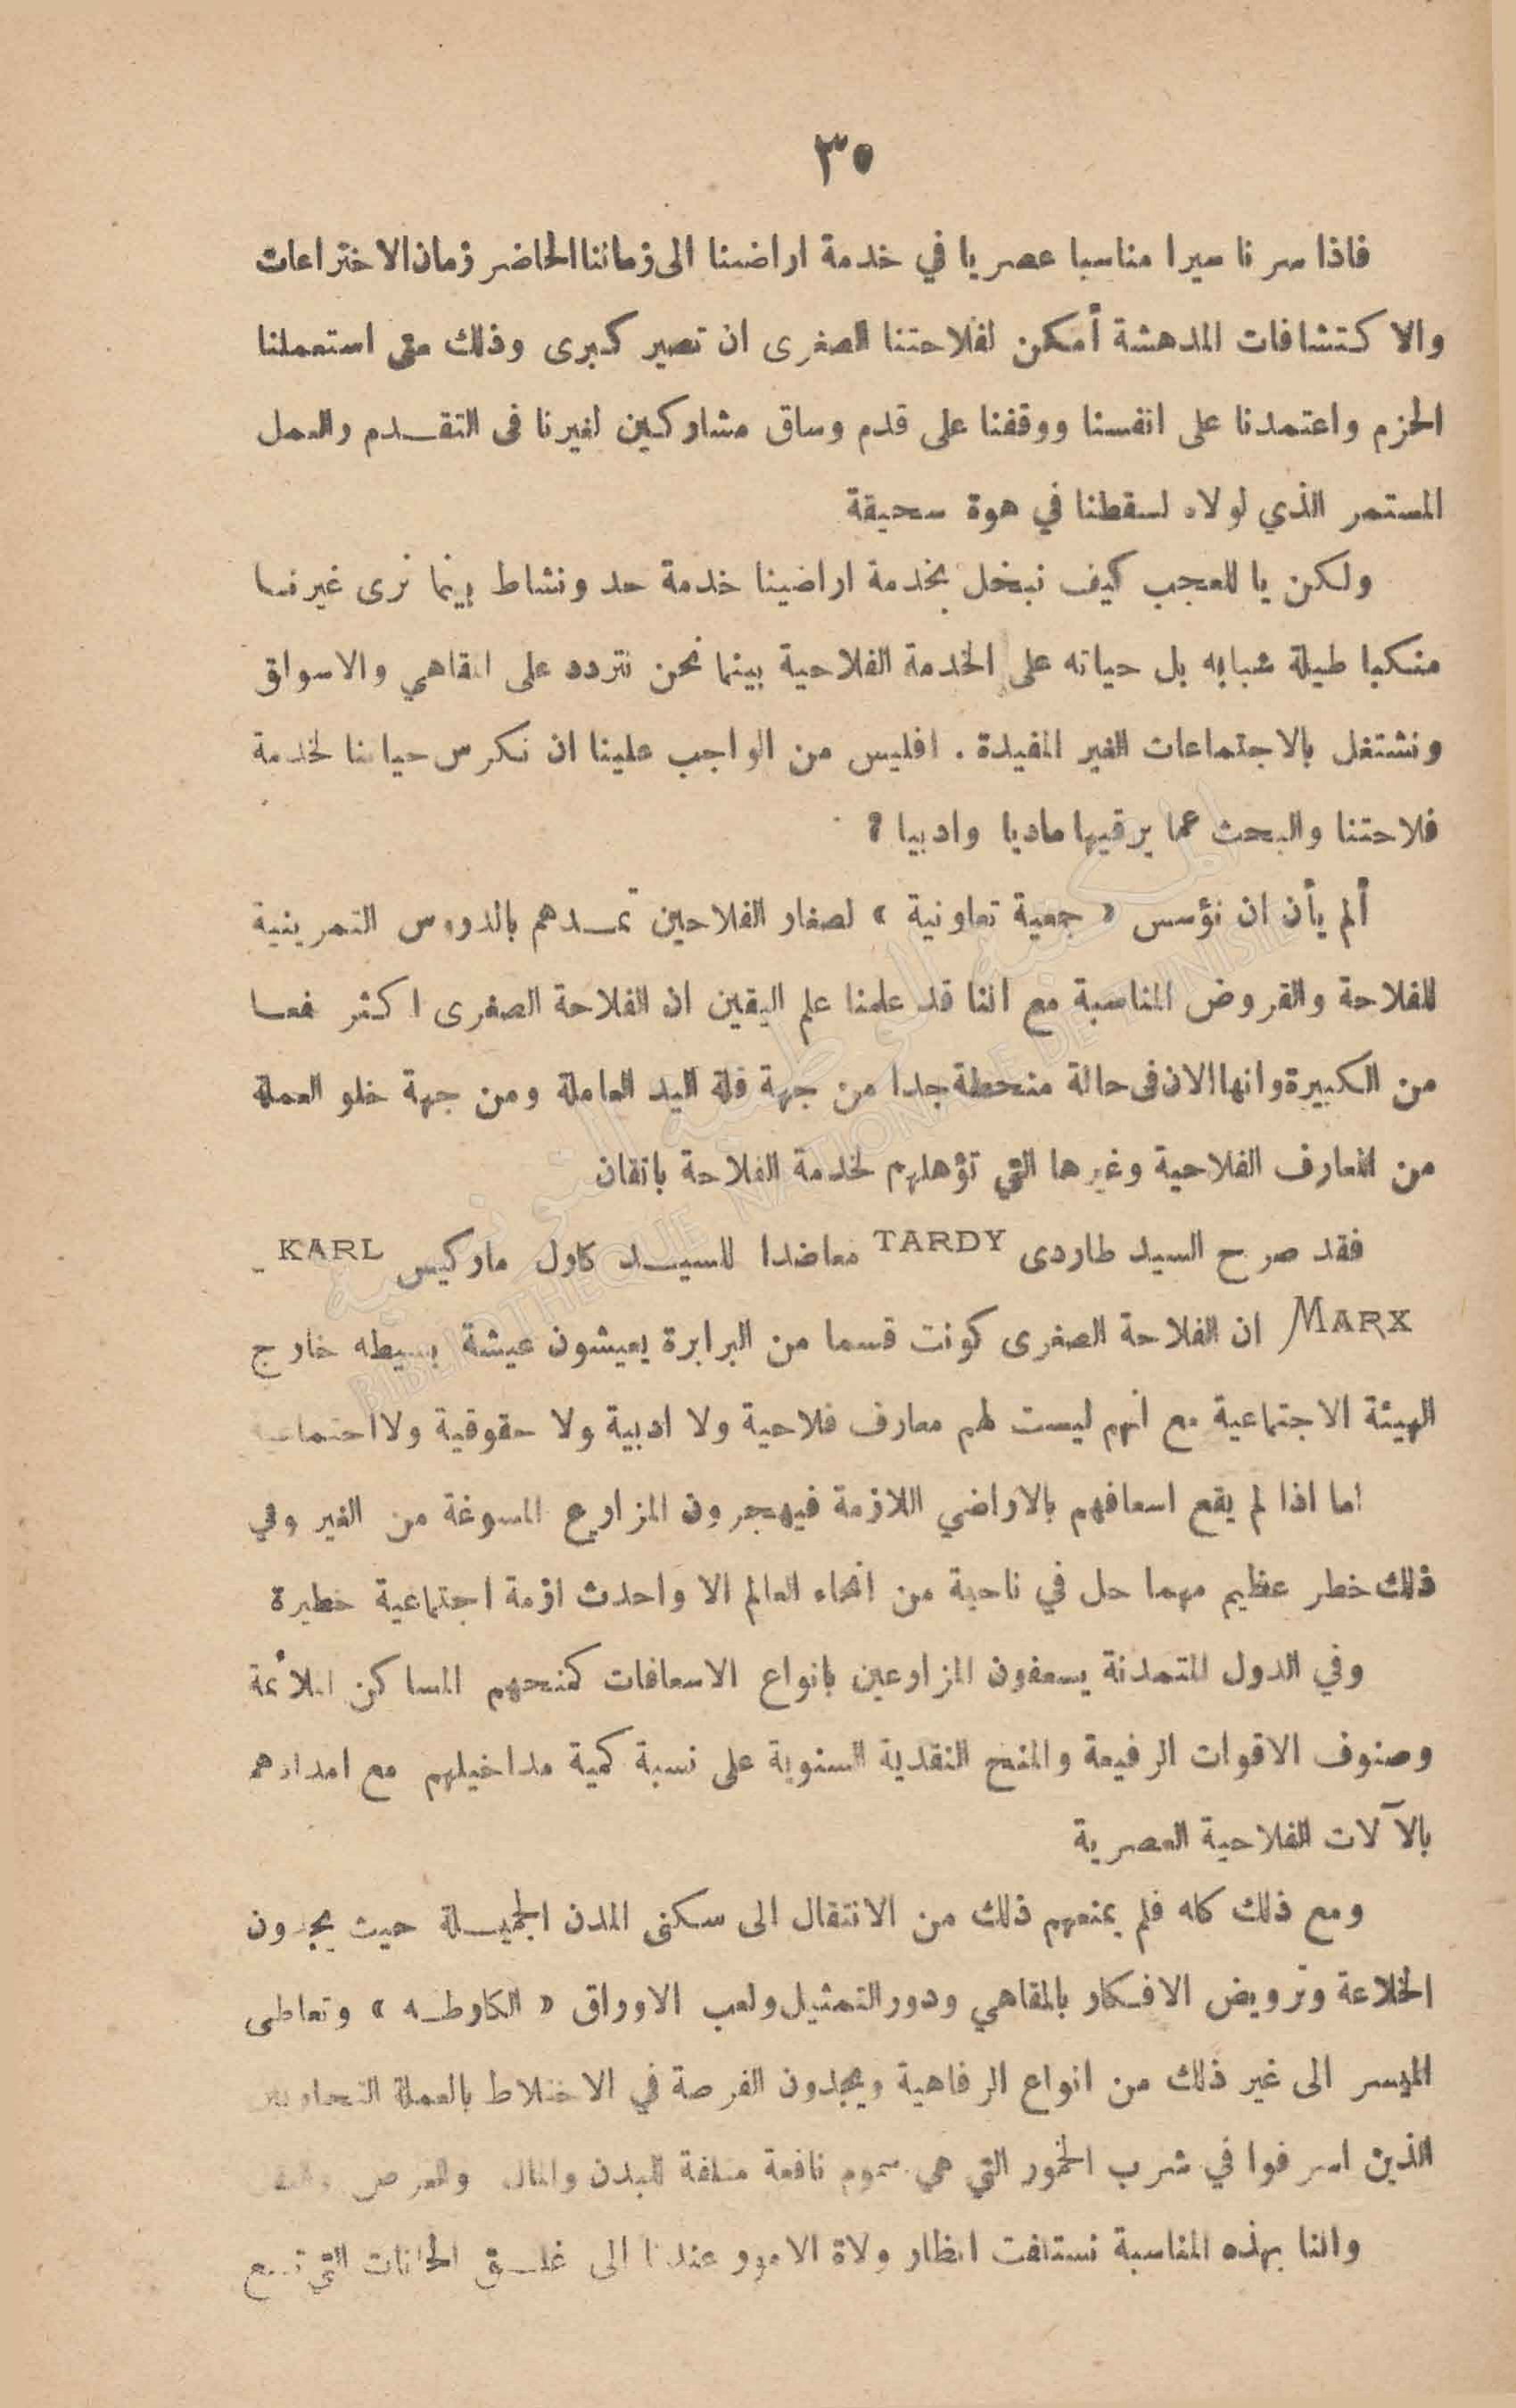 ٣٥
فاذا سرنا سيرا مناسبا عصريا في خدمة اراضينا الى زماننا الحاضر زمان الاختراعات
والاكتشافات المدهشة أمكن لفلاحتنا الصغرى ان تصير كبرى وذلك متى استعملنا
الحزم واعتمدنا على انفسنا ووقفنا على قدم وساق مشاركين لغيرنا في التقدم والعمل
المستمر الذي لولاه لسقطنا في هوة سحيقة
ولكن يا للعجب كيف نبخل بخدمة اراضينا خدمة جد ونشاط بينما نرى غيرنا
منكبا طيلة شبابه بل حياته على الخدمة الفلاحية بينما نحن نتردد على المقاهي والاسواق
ونشتغل بالاجتماعات الغير المفيدة . افليس من الواجب علينا ان نكرس حياتنا لخدمة
فلاحتنا والبحث عما يرقيها ماديا وادبيا ؟
ألم يأن ان نؤسس « جمعية تعاونية » لصغار الفلاحين تمدهم بالدروس التمرينية
للفلاحة والقروض المناسبة مع اننا قد علمنا علم اليقين ان الفلاحة الصغرى اكثر نفعا
من الكبيرة وانها الان في حالة منحطة جدا من جهة قلة اليد العاملة ومن جهة خلو العملة
من المعارف الفلاحية وغيرها التي تؤهلهم لخدمة الفلاحة باتقان
فقد صرح السيد طاردى TARDY معاضدا للسيد كارل ماركيس KARL -
MARX ان الفلاحة الصغرى كونت قسما من البرابرة يعيشون عيشة بسيطه خارج
الهيئة الاجتماعية مع أنهم ليست لهم معارف فلاحية ولا ادبية ولا حقوقية ولا اجتماعية
اما اذا لم يقع اسعافهم بالاراضي اللازمة فيهجرون المزارع المسوغة من الغير وفي
ذلك خطر عظيم مهما حل في ناحية من انحاء العالم الا واحدث ازمة اجتماعية خطيرة
وفي الدول المتمدنة يسعفون المزارعين بانواع الاسعافات كمنحهم المساكن الملأئمة
وصنوف الاقوات الرفيعة والمنح النقدية السنوية على نسبة كمية مداخيلهم مع امدادهم
بالآلات الفلاحية العصرية
ومع ذلك كله فلم يمنعهم ذلك من الانتقال الى سكنى المدن الجميلة حيث يجدون
الخلاعة وترويض الافكار بالمقاهي ودور التمثيل ولعب الاوراق « الكارطه » وتعاطى
الميسر الى غير ذلك من انواع الرفاهية ويجدون الفرصة في الاختلاط بالعملة
الذين اسرفوا في شرب الخمور التي هي سموم ناقعة متلفة للبدن والمال والعرض
واننا بهذه المناسبة نستلفت انظار ولاة الامور عندنا الى غلق الحانات التي
المكتبة الوطنية التونسية
BIBLIOTHEQUE NATIONALE DE TUNISIE